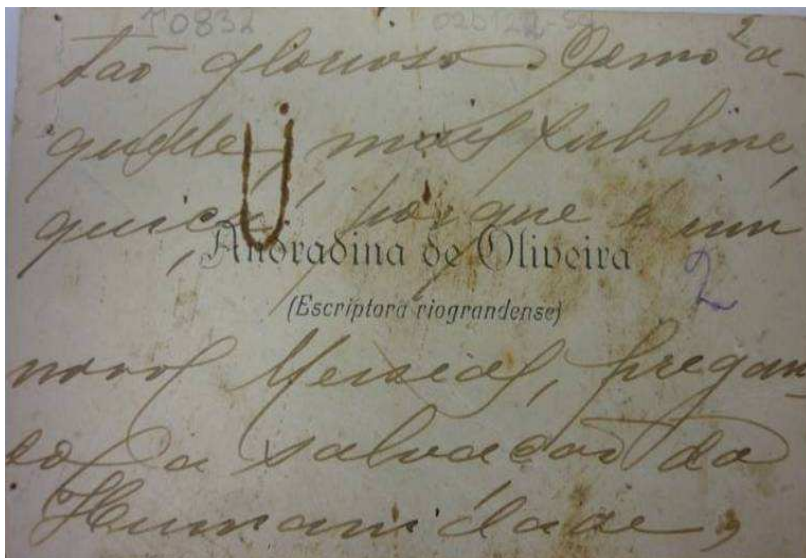 T0832 02b122-59
2
tão glorioso como a-
quelle, mais sublime,
quiçá, porque é um
Andradina de Oliveira
2
(Escriptora riograndense)
novo Messias, pregan-
do a salvação da
Humanidade,